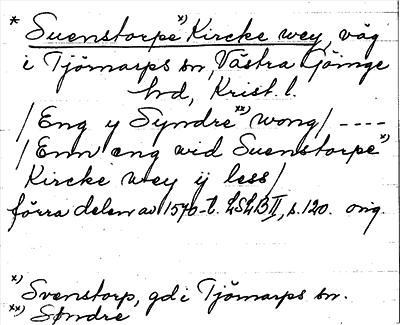 * Suenstorpe x) Kircke wey, väg
i Tjörnarps sn, Västra Göinge
hd, Krist. l.
/Eng y Syndre xx) wong/ ----
/Enn eng wid Suenstorpe x)
Kircke wey ij less/
förra delen av 1570-t. LSLB II, s. 120. orig.
x) Svenstorp, gd i Tjörnarps sn.
xx) Søndre